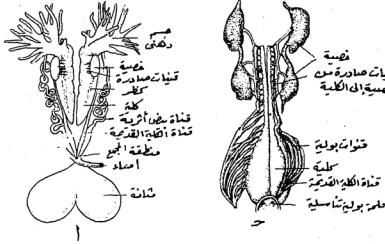 جسم
دهنى
خصية
قنيات صادرة
كظر
كلية
قناة بيض أثرية
قناة الكلية القدمية
منطقة المجمع
أمعاء
مثانة
أ
خصية
صادرة من
إلى الكلية
قنوات بولية
كلية
قناة الكلية القدمية
حلمة بولية تناسلية
حـ